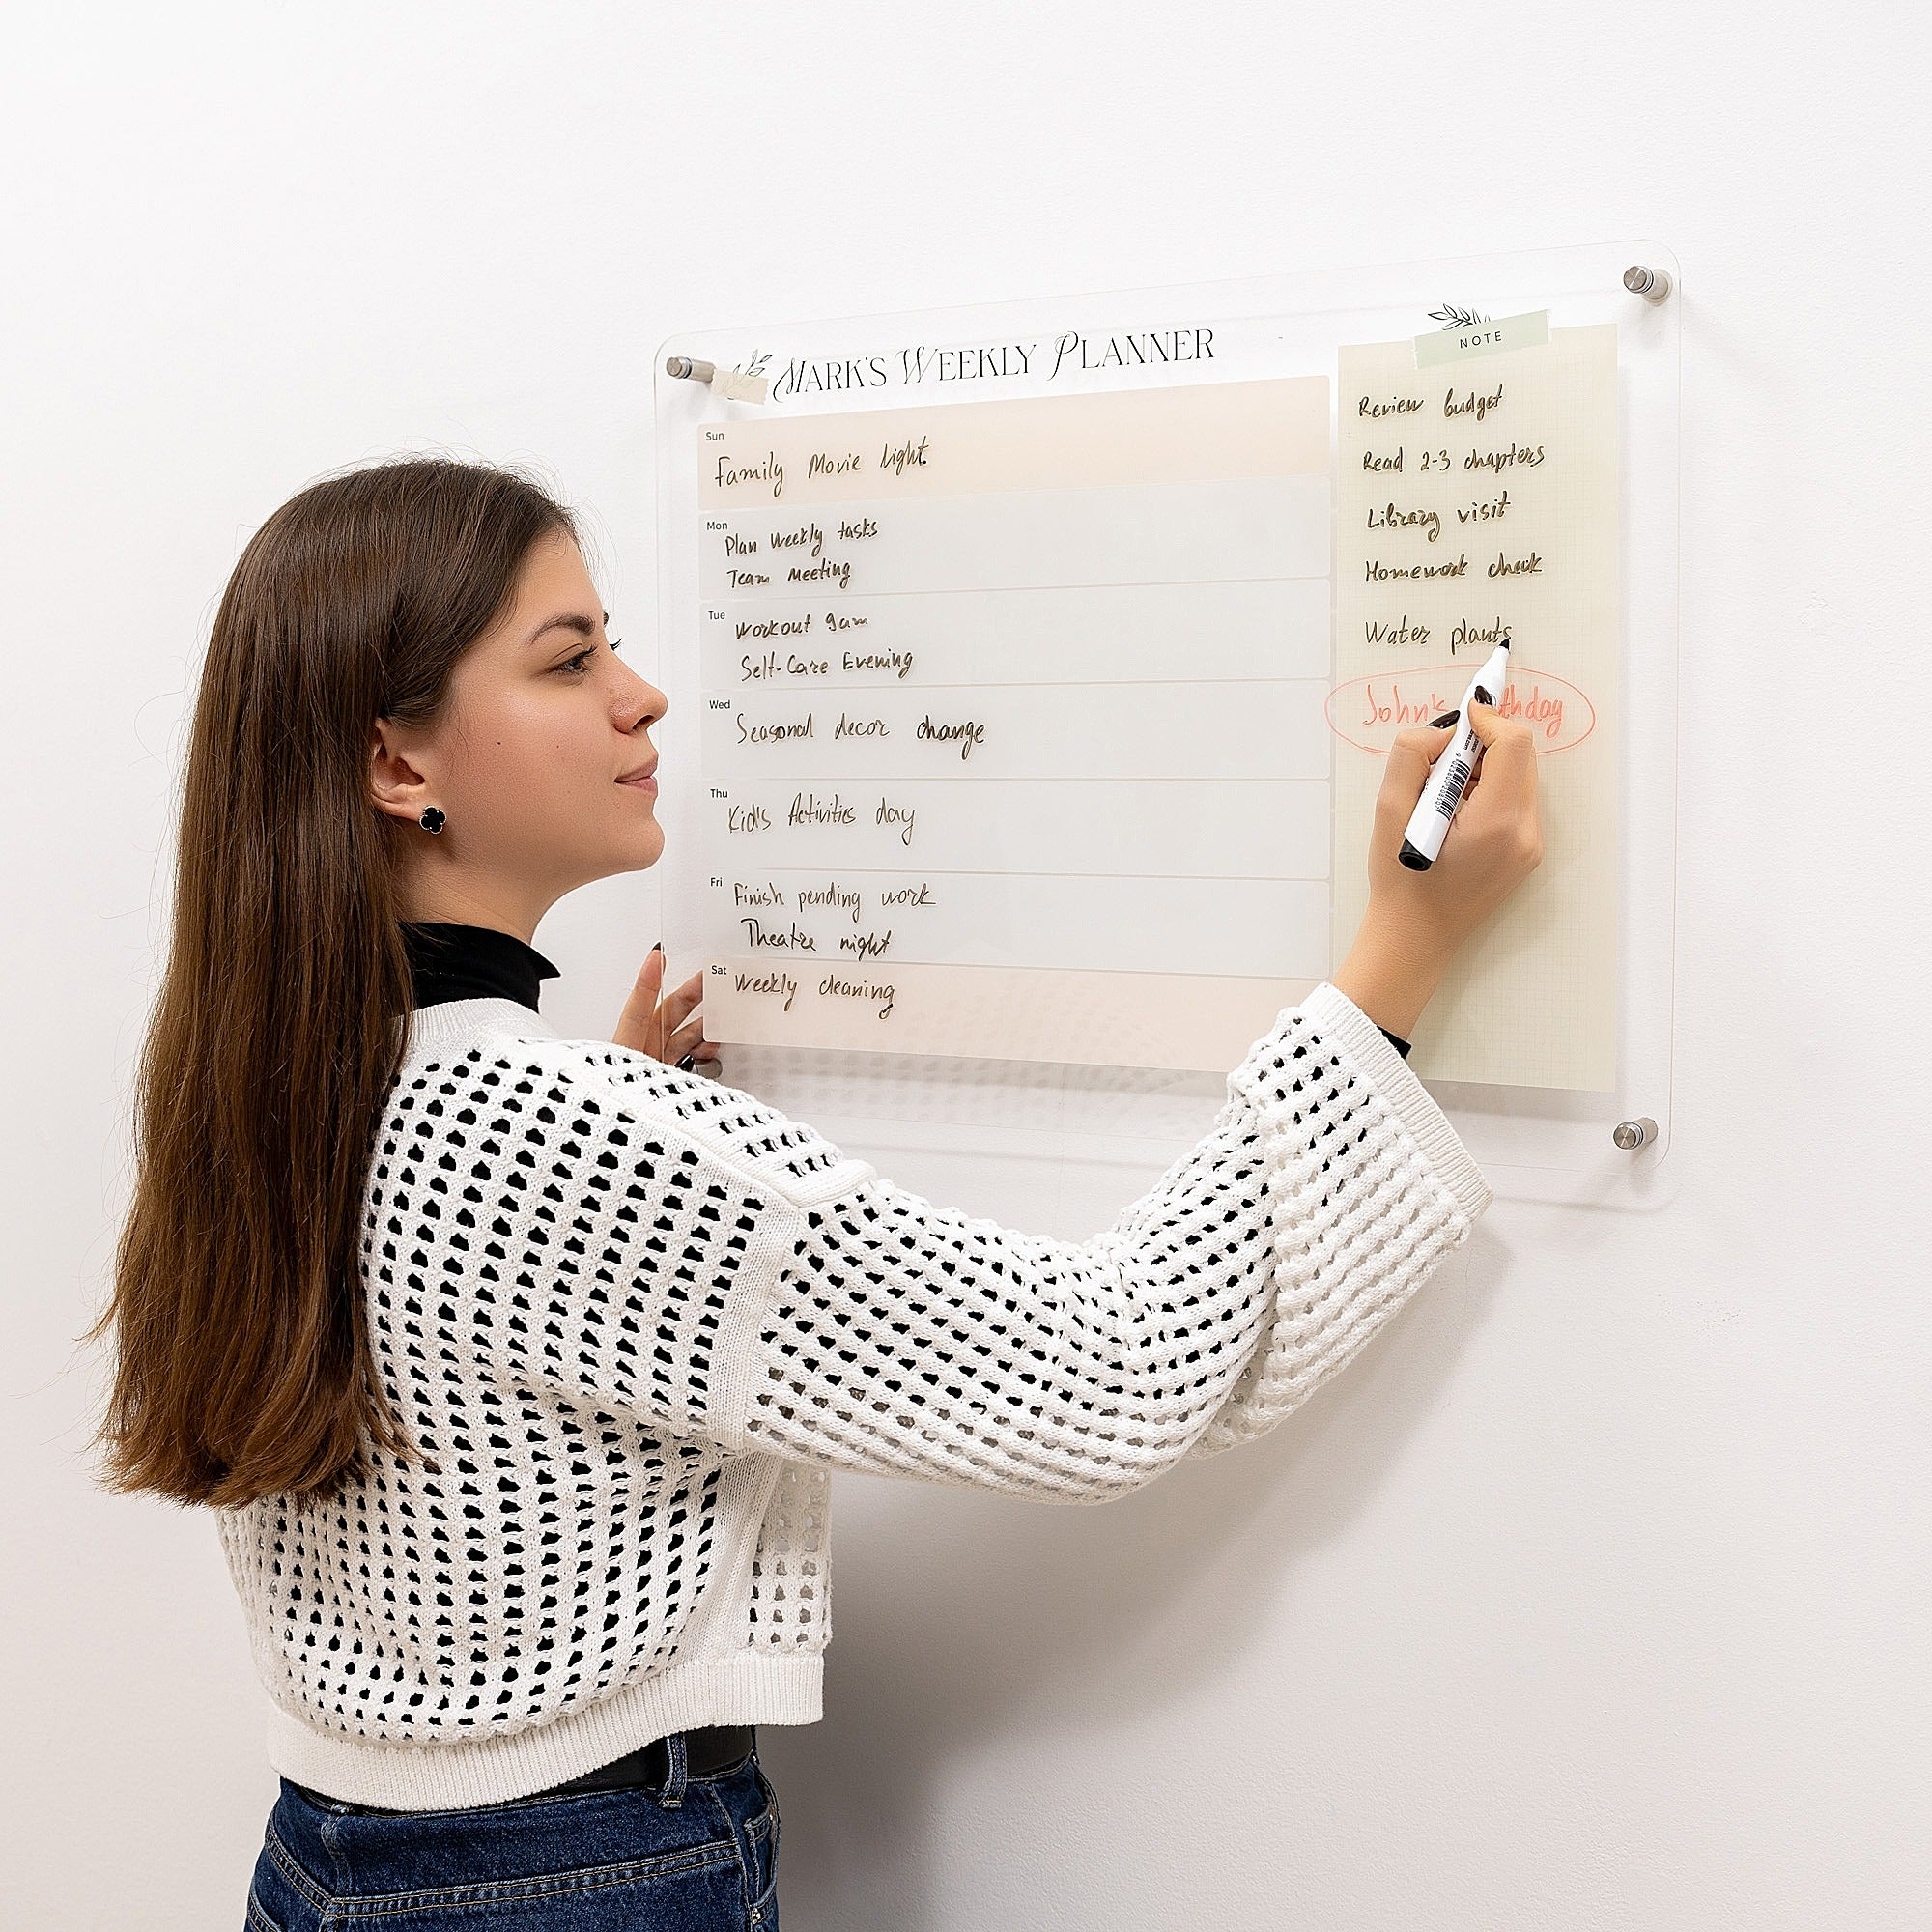 MARK'S WEEKLY PLANNER
Sun
Family Movie Night
Mon
Plan weekly tasks
Team meeting
Tue
Workout 9am
Self-Care Evening
Wed
Seasonal decor change
Thu
Kid's Activities day
Fri
Finish pending work
Theatre night
Sat
Weekly cleaning
NOTE
Review budget
Read 2-3 chapters
Library visit
Homework check
Water plants
John's